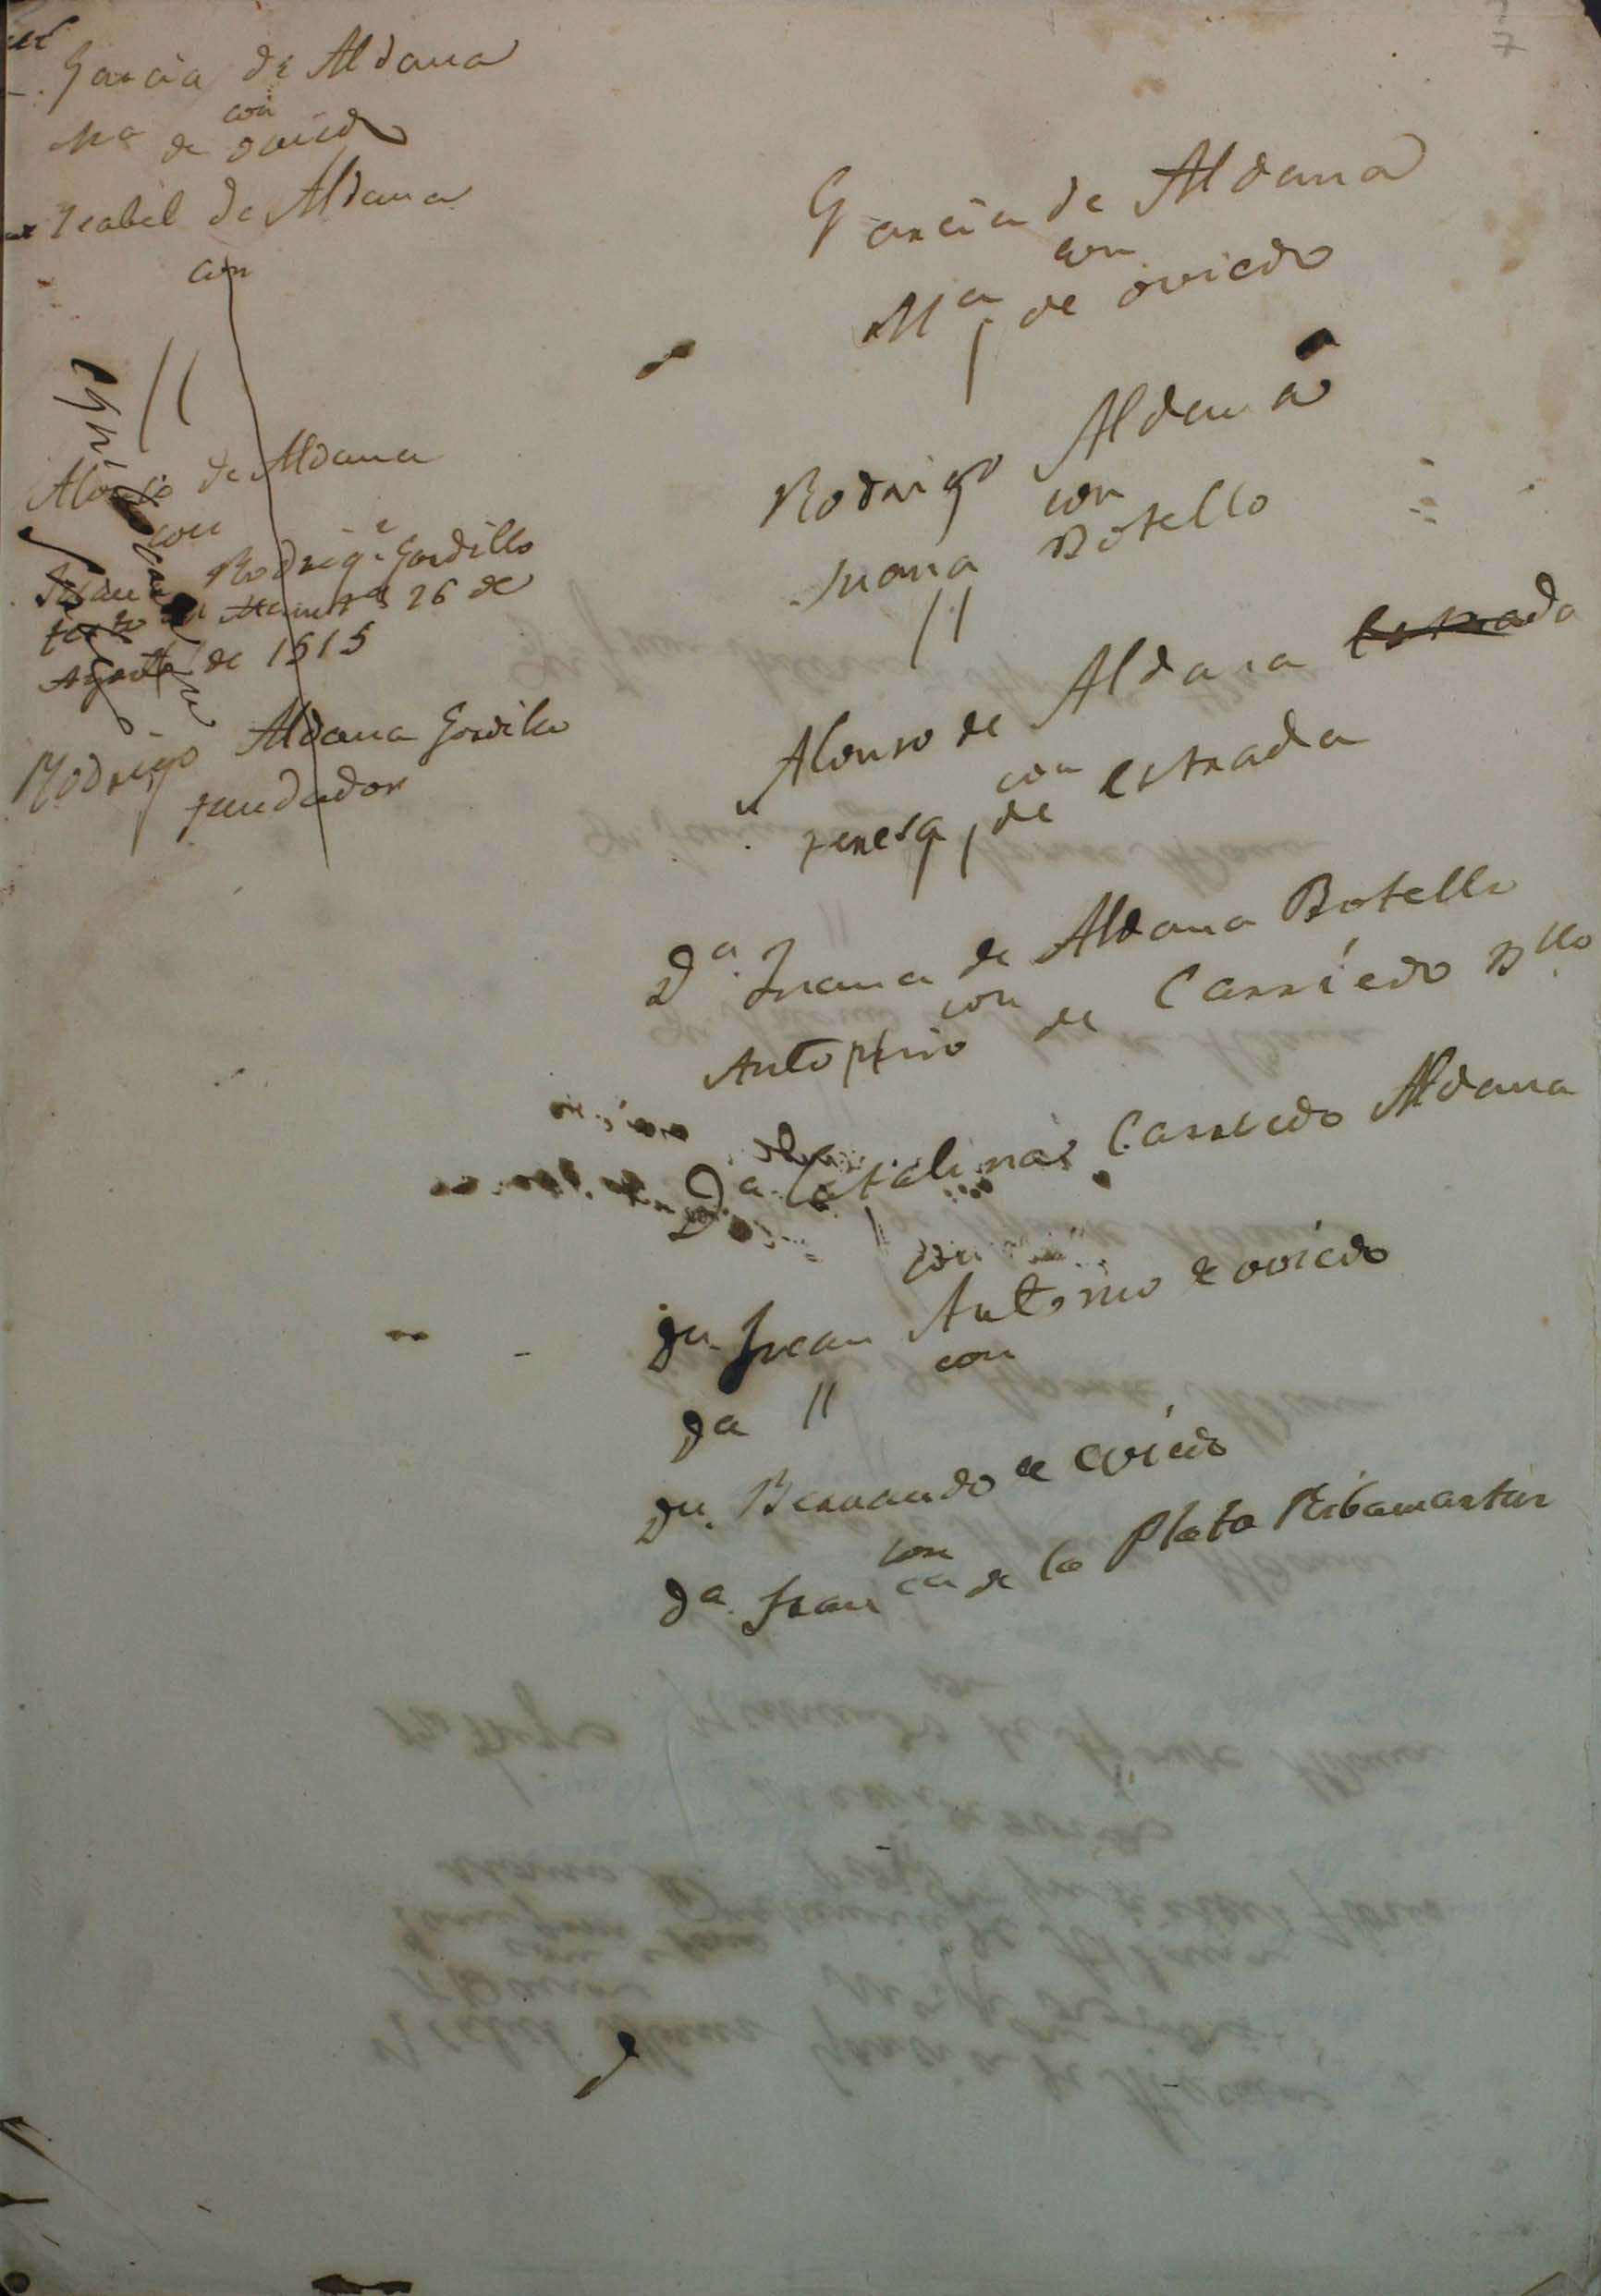 Garcia de Aldana
con
Ma de ovied
Isabel de Aldana
con
Alonso de Aldana
con
Rodrig.e Gordillo
26 de
Agosto de 1515
Rodrigo Aldana Gordillo
fundador
7
Garcia de Aldana
con
Ma de oviedo
Rodrigo Aldana
con
Juana Botello
Alonso de Aldana Estrada
con
teresa de estrada
Da. Juana de Aldana Botello
con
Antonio de Carriedo Bllo
Da Catalina Carriedo Aldana
con
Dn Juan Antonio de oviedo
con
Da //
Dn. Bernando de oviedo
con
Da. Franca de la Plata Ribamartin